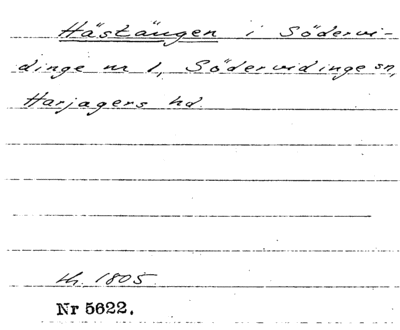 Hästängen i Södervi-
dinge nr 1, Södervidinge sn,
Harjagers hd.
th. 1805
Nr 5622.